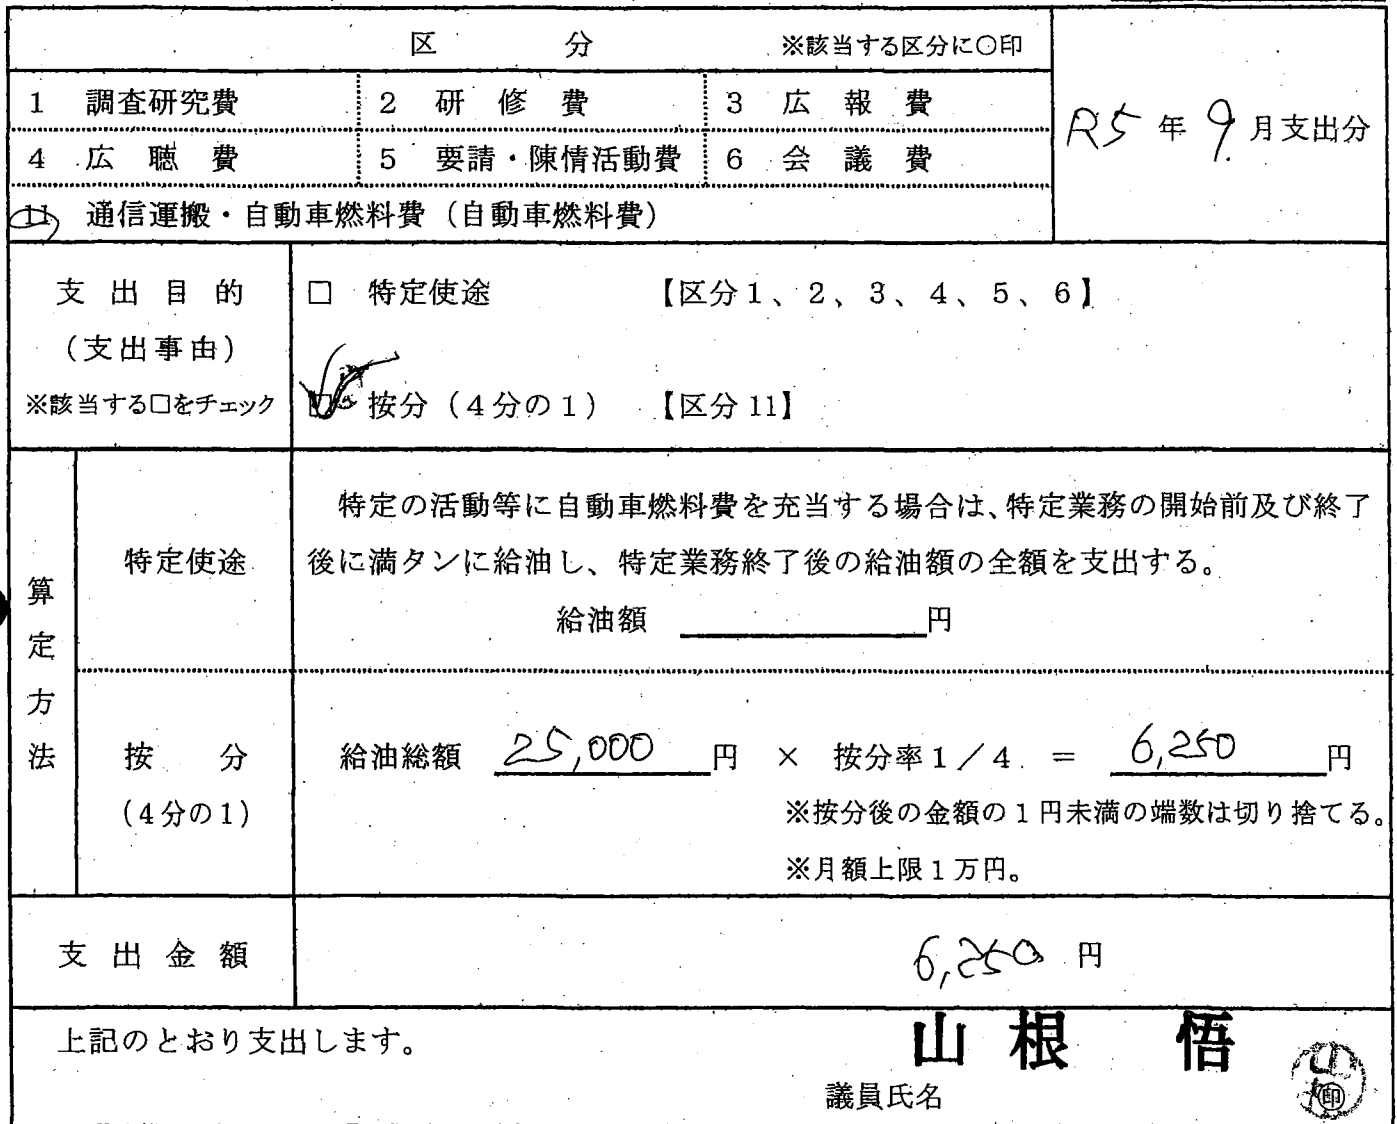 区 分 ※該当する区分に〇印
1 調査研究費 2 研修費 3 広報費
R5 年 9 月支出分
4 広聴費 5 要請・陳情活動費 6 会議費
11 通信運搬・自動車燃料費（自動車燃料費）
支出目的
（支出事由）
※該当する□をチェック
□ 特定使途 【区分1、2、3、4、5、6】
□ 按分（4分の1） 【区分11】
算定方法
特定使途
特定の活動等に自動車燃料費を充当する場合は、特定業務の開始前及び終了
後に満タンに給油し、特定業務終了後の給油額の全額を支出する。
給油額 円
按分
（4分の1）
給油総額 25,000 円 × 按分率1／4 ＝ 6,250 円
※按分後の金額の1円未満の端数は切り捨てる。
※月額上限1万円。
支出金額 6,250 円
上記のとおり支出します。
山根 悟
議員氏名 ㊞